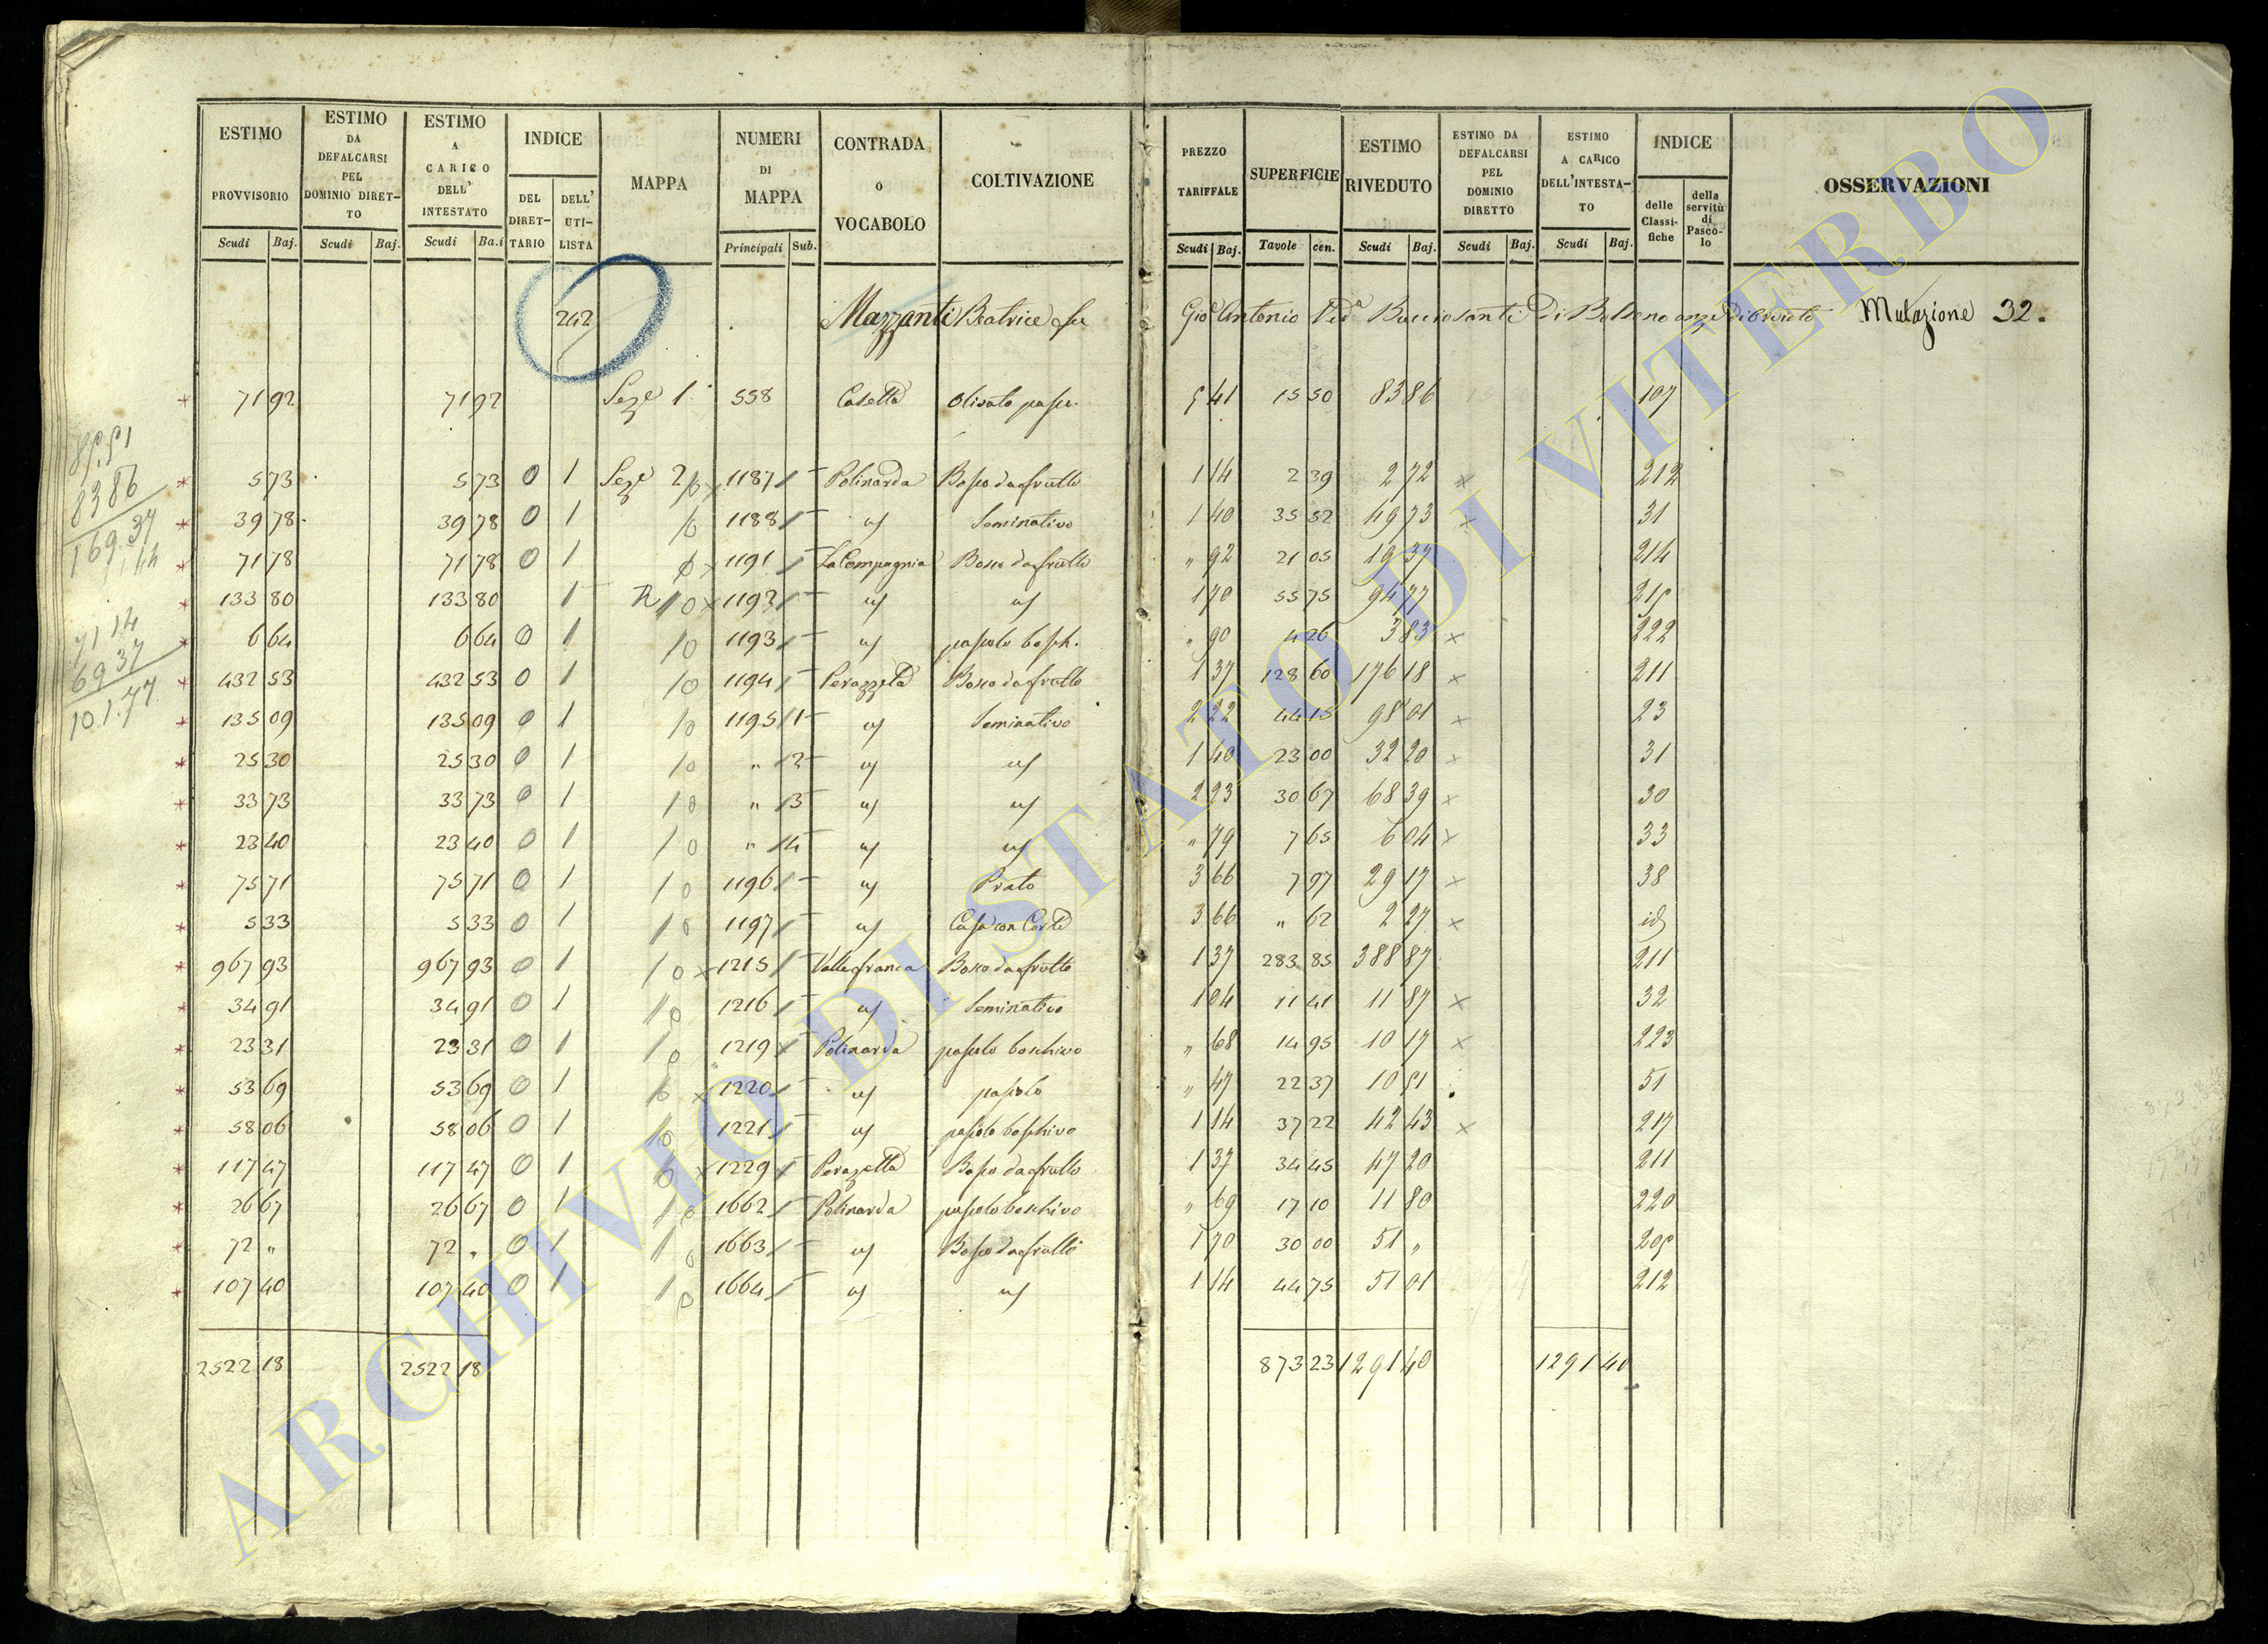 ESTIMO PROVVISORIO Scudi Baj.
ESTIMO DA DEFALCARSI PEL DOMINIO DIRET-TO Scudi Baj.
ESTIMO A CARICO DELL' INTESTATO Scudi Ba.i
INDICE DEL DIRET-TARIO DELL' UTI-LISTA
MAPPA
NUMERI DI MAPPA Principali Sub.
CONTRADA O VOCABOLO
COLTIVAZIONE
PREZZO TARIFFALE Scudi Baj.
SUPERFICIE Tavole cen.
ESTIMO RIVEDUTO Scudi Baj.
ESTIMO DA DEFALCARSI PEL DOMINIO DIRETTO Scudi Baj.
ESTIMO A CARICO DELL'INTESTA-TO Scudi Baj.
INDICE delle Classi-fiche della servitù di Pasco-lo
OSSERVAZIONI
242 Mazzanti Beatrice fu Gio Antonio Ved.a Bucciosanti di Bolseno Mutazione 32.
71 92 71 92 Seze 1. 558 Casetta Olivato pasc. 5 41 15 50 83 86 107
5 73 5 73 0 1 Seze 2 1187 Polinarda Bosco da frutto 1 14 2 39 2 72 212
39 78 39 78 0 1 1188 uf Seminativo 1 40 35 52 49 73 31
71 78 71 78 0 1 1191 La Compagnia Bosco da frutto " 92 21 05 19 37 214
133 80 133 80 1 1192 uf uf 1 70 55 75 94 77 215
6 64 6 64 0 1 1193 uf pascolo bosch. " 90 4 26 3 83 222
432 53 432 53 0 1 1194 Perazzeta Bosco da frutto 1 37 128 60 176 18 211
135 09 135 09 0 1 1195 1 uf Seminativo 2 22 44 15 98 01 23
25 30 25 30 0 1 " 2 uf uf 1 40 23 00 32 20 31
33 73 33 73 0 1 " 3 uf uf 2 23 30 67 68 39 30
23 40 23 40 0 1 " 4 uf uf " 79 7 65 6 04 33
75 71 75 71 0 1 1196 uf Prato 3 66 7 97 29 17 38
5 33 5 33 0 1 1197 uf Casa con Corte 3 66 " 62 2 27 id
967 93 967 93 0 1 1215 Vallefranca Bosco da frutto 1 37 283 85 388 87 211
34 91 34 91 0 1 1216 uf Seminativo 1 04 11 41 11 87 32
23 31 23 31 0 1 1219 Polinarda pascolo boschivo " 68 14 95 10 17 223
53 69 53 69 0 1 1220 uf pascolo " 47 22 37 10 51 51
58 06 58 06 0 1 1221 uf pascolo boschivo 1 14 37 22 42 43 217
117 47 117 47 0 1 1229 Perazetta Bosco da frutto 1 37 34 45 47 20 211
26 67 26 67 0 1 1662 Polinarda pascolo boschivo " 69 17 10 11 80 220
72 " 72 " 0 1 1663 uf Bosco da frutto 1 70 30 00 51 " 205
107 40 107 40 0 1 1664 uf uf 1 14 44 75 51 01 212
2522 18 2522 18 873 23 1291 40 1291 40
85,51
83 86
169,37
71 14
69 37
101.77
ARCHIVIO DI STATO DI VITERBO